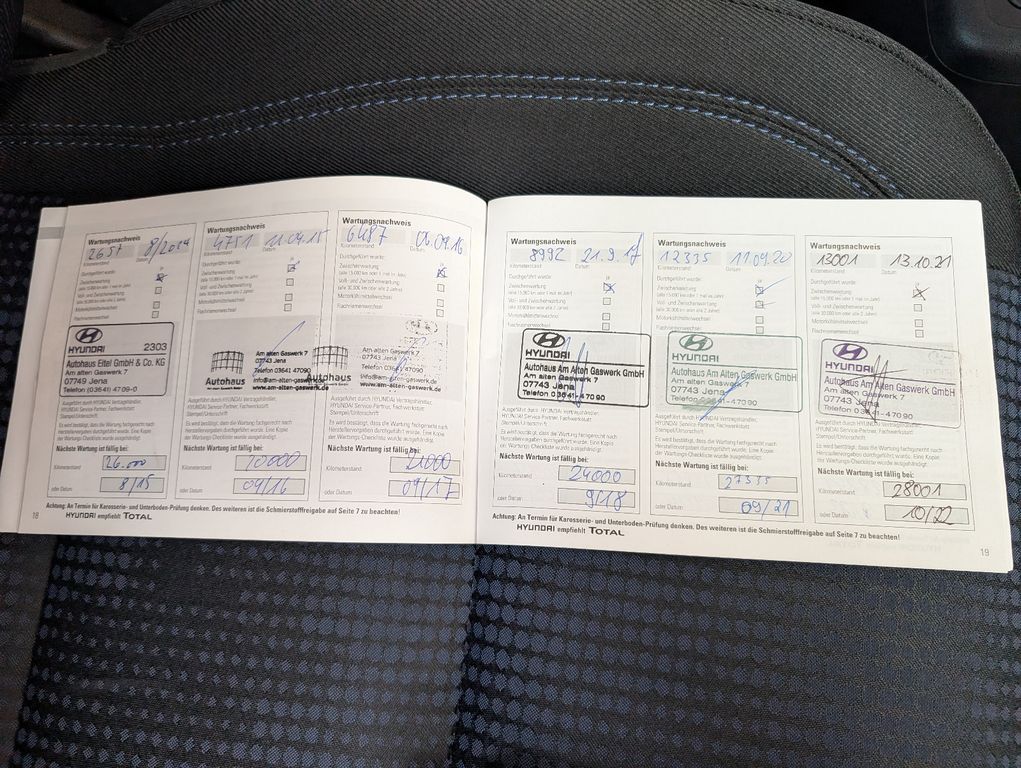 Wartungsnachweis
2657 8/2014
Kilometerstand Datum
Durchgeführt wurde: ja
Zwischenwartung
(alle 15.000 km oder 1 mal im Jahr)
Voll- und Zwischenwartung
(alle 30.000 km oder alle 2 Jahre)
Motorkühlmittelwechsel
Flachriemenwechsel
HYUNDAI 2303
Autohaus Eitel GmbH & Co. KG
Am alten Gaswerk 7
07749 Jena
Telefon (03641) 4709-0
Ausgeführt durch HYUNDAI Vertragshändler,
HYUNDAI Service-Partner, Fachwerkstatt
Stempel/Unterschrift
Es wird bestätigt, dass die Wartung fachgerecht nach
Herstellervorgaben durchgeführt wurde. Eine Kopie
der Wartungs-Checkliste wurde ausgehändigt.
Nächste Wartung ist fällig bei:
Kilometerstand 26.000
oder Datum: 8/15
Wartungsnachweis
4751 11.04.15
Kilometerstand Datum
Durchgeführt wurde: ja
Zwischenwartung
(alle 15.000 km oder 1 mal im Jahr)
Voll- und Zwischenwartung
(alle 30.000 km oder alle 2 Jahre)
Motorkühlmittelwechsel
Flachriemenwechsel
Autohaus
Am alten Gaswerk 7
07743 Jena
Telefon 03641 47090
info@am-alten-gaswerk.de
www.am-alten-gaswerk.de
Ausgeführt durch HYUNDAI Vertragshändler,
HYUNDAI Service-Partner, Fachwerkstatt
Stempel/Unterschrift
Es wird bestätigt, dass die Wartung fachgerecht nach
Herstellervorgaben durchgeführt wurde. Eine Kopie
der Wartungs-Checkliste wurde ausgehändigt.
Nächste Wartung ist fällig bei:
Kilometerstand
oder Datum: 04/16
Wartungsnachweis
6487 06.09.16
Kilometerstand Datum
Durchgeführt wurde: ja
Zwischenwartung
(alle 15.000 km oder 1 mal im Jahr)
Voll- und Zwischenwartung
(alle 30.000 km oder alle 2 Jahre)
Motorkühlmittelwechsel
Flachriemenwechsel
Autohaus
Am alten Gaswerk 7
07743 Jena
Telefon 03641 47090
info@am-alten-gaswerk.de
www.am-alten-gaswerk.de
Ausgeführt durch HYUNDAI Vertragshändler,
HYUNDAI Service-Partner, Fachwerkstatt
Stempel/Unterschrift
Es wird bestätigt, dass die Wartung fachgerecht nach
Herstellervorgaben durchgeführt wurde. Eine Kopie
der Wartungs-Checkliste wurde ausgehändigt.
Nächste Wartung ist fällig bei:
Kilometerstand
oder Datum: 09/17
Achtung: An Termin für Karosserie- und Unterboden-Prüfung denken. Des weiteren ist die Schmierstofffreigabe auf Seite 7 zu beachten!
18 HYUNDAI empfiehlt TOTAL
Wartungsnachweis
8992 21.9.17
Kilometerstand Datum
Durchgeführt wurde: ja
Zwischenwartung
(alle 15.000 km oder 1 mal im Jahr)
Voll- und Zwischenwartung
(alle 30.000 km oder alle 2 Jahre)
Motorkühlmittelwechsel
Flachriemenwechsel
HYUNDAI
Autohaus Am Alten Gaswerk GmbH
Am alten Gaswerk 7
07743 Jena
Telefon 03641-47090
Ausgeführt durch HYUNDAI Vertragshändler,
HYUNDAI Service-Partner, Fachwerkstatt
Stempel/Unterschrift
Es wird bestätigt, dass die Wartung fachgerecht nach
Herstellervorgaben durchgeführt wurde. Eine Kopie
der Wartungs-Checkliste wurde ausgehändigt.
Nächste Wartung ist fällig bei:
Kilometerstand 24000
oder Datum: 9/18
Wartungsnachweis
12335 11.09.20
Kilometerstand Datum
Durchgeführt wurde: ja
Zwischenwartung
(alle 15.000 km oder 1 mal im Jahr)
Voll- und Zwischenwartung
(alle 30.000 km oder alle 2 Jahre)
Motorkühlmittelwechsel
Flachriemenwechsel
HYUNDAI
Autohaus Am Alten Gaswerk GmbH
Am alten Gaswerk 7
07743 Jena
Telefon 03641-47090
Ausgeführt durch HYUNDAI Vertragshändler,
HYUNDAI Service-Partner, Fachwerkstatt
Stempel/Unterschrift
Es wird bestätigt, dass die Wartung fachgerecht nach
Herstellervorgaben durchgeführt wurde. Eine Kopie
der Wartungs-Checkliste wurde ausgehändigt.
Nächste Wartung ist fällig bei:
Kilometerstand 27335
oder Datum: 09/21
Wartungsnachweis
13001 13.10.21
Kilometerstand Datum
Durchgeführt wurde: ja
Zwischenwartung
(alle 15.000 km oder 1 mal im Jahr)
Voll- und Zwischenwartung
(alle 30.000 km oder alle 2 Jahre)
Motorkühlmittelwechsel
Flachriemenwechsel
HYUNDAI
Autohaus Am Alten Gaswerk GmbH
Am alten Gaswerk 7
07743 Jena
Telefon 03641-47090
Ausgeführt durch HYUNDAI Vertragshändler,
HYUNDAI Service-Partner, Fachwerkstatt
Stempel/Unterschrift
Es wird bestätigt, dass die Wartung fachgerecht nach
Herstellervorgaben durchgeführt wurde. Eine Kopie
der Wartungs-Checkliste wurde ausgehändigt.
Nächste Wartung ist fällig bei:
Kilometerstand 28001
oder Datum: 10/22
Achtung: An Termin für Karosserie- und Unterboden-Prüfung denken. Des weiteren ist die Schmierstofffreigabe auf Seite 7 zu beachten!
HYUNDAI empfiehlt TOTAL 19